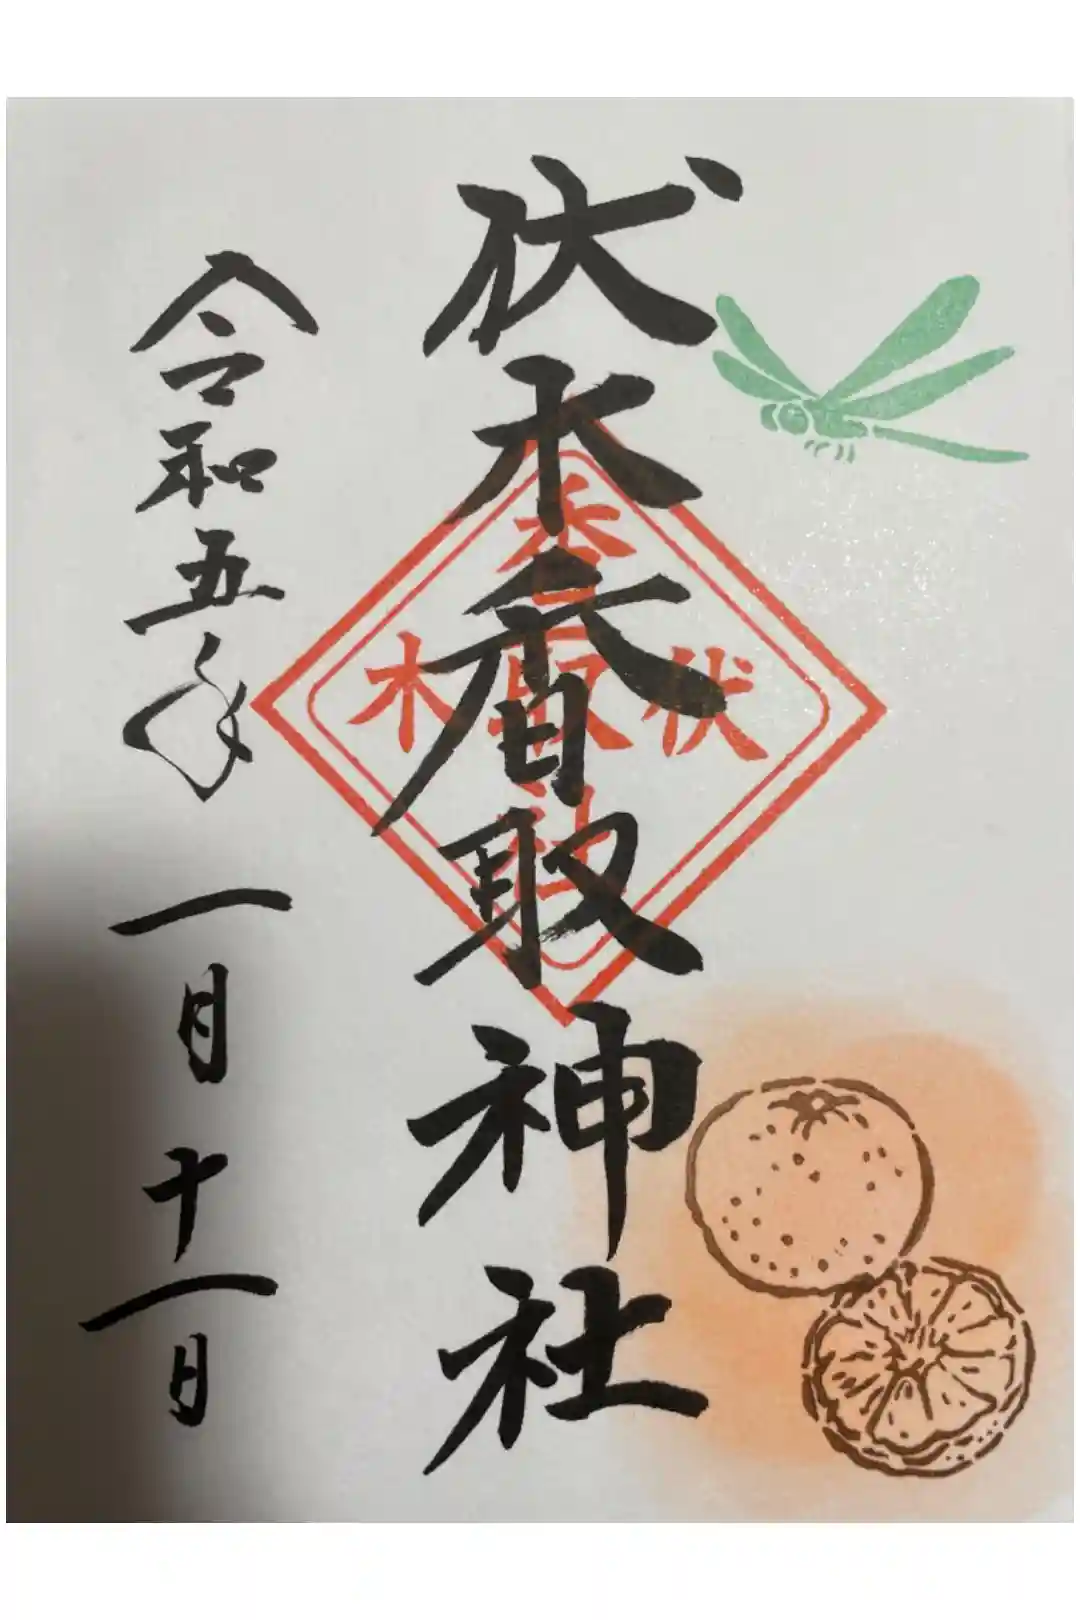 伏木香取神社
令和五年 一月十一日
伏
香取社
木